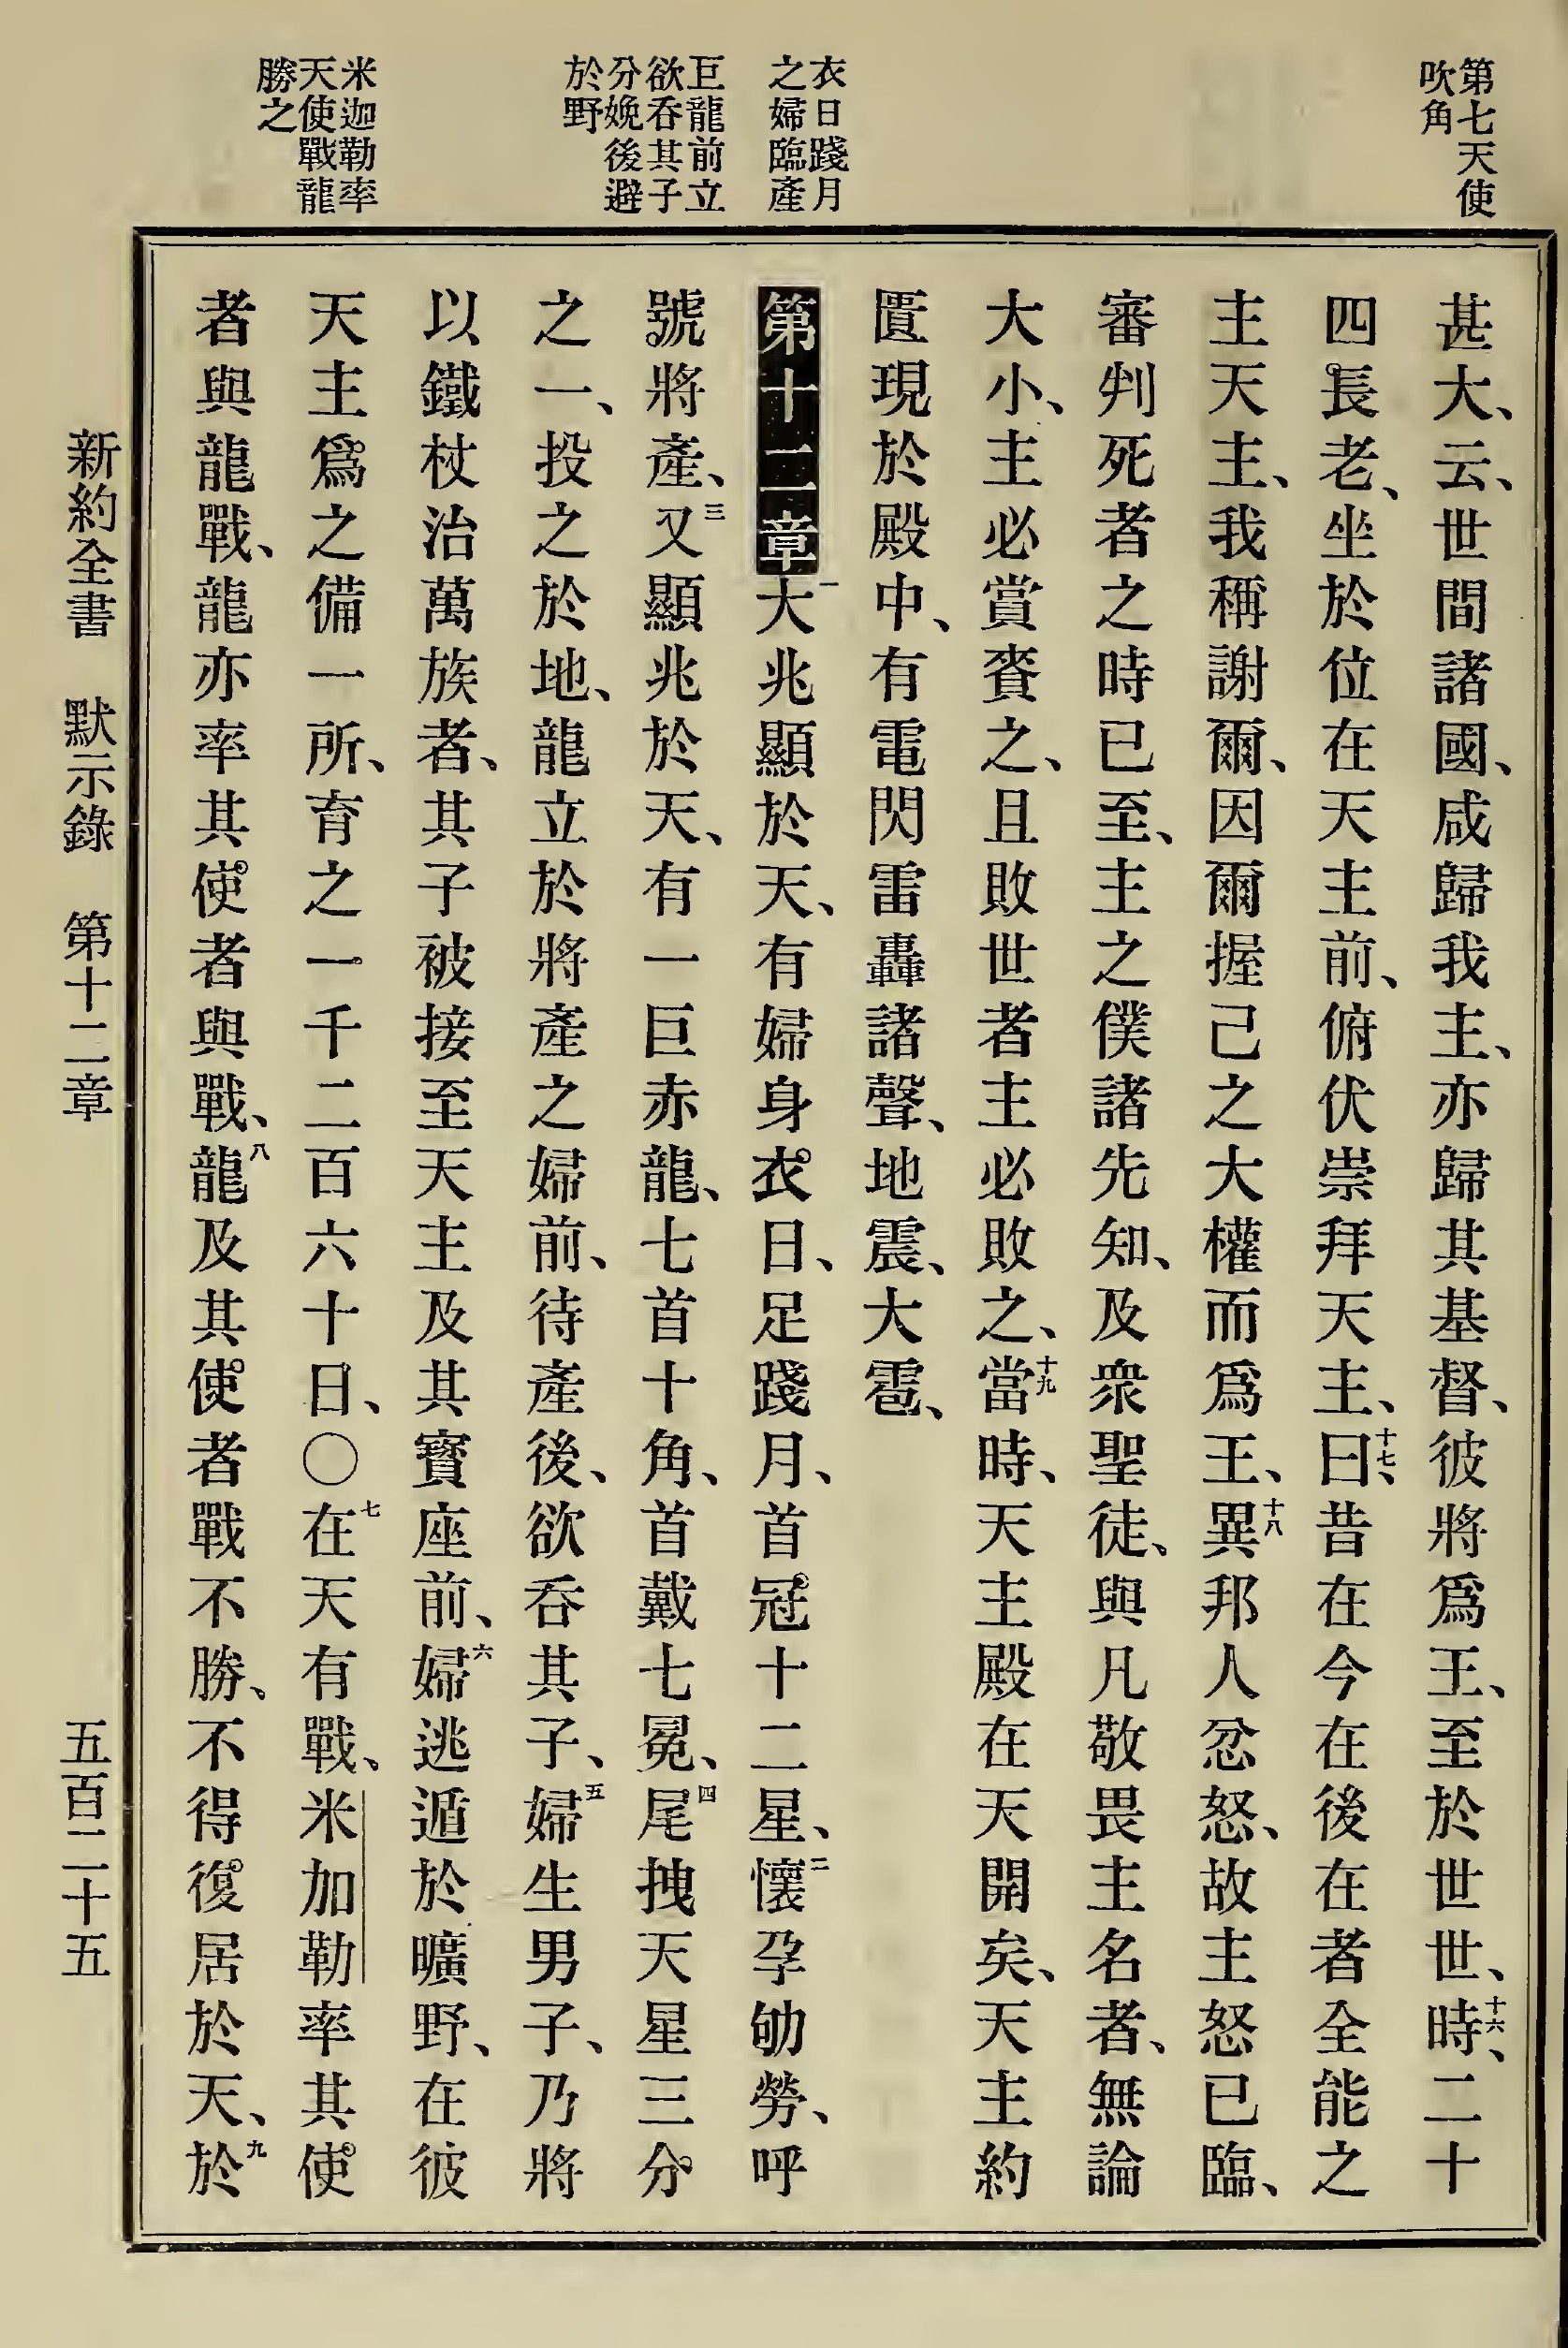 第七天使
吹角
衣日踐月
之婦臨產
巨龍前立
欲吞其子
分娩後避
於野
米迦勒率
天使戰龍
勝之
甚大、云、世間諸國、咸歸我主、亦歸其基督、彼將爲王、至於世世、十六時、二十
四長老、坐於位在天主前、俯伏崇拜天主、十七曰、昔在今在後在者全能之
主天主、我稱謝爾、因爾握己之大權而爲王、十八異邦人忿怒、故主怒已臨、
審判死者之時已至、主之僕諸先知、及衆聖徒、與凡敬畏主名者、無論
大小、主必賞賚之、且敗世者主必敗之、十九當時、天主殿在天開矣、天主約
匱現於殿中、有電閃雷轟諸聲、地震、大雹、
第十二章一大兆顯於天、有婦身衣日、足踐月、首冠十二星、二懷孕劬勞、呼
號將產、三又顯兆於天、有一巨赤龍、七首十角、首戴七冕、四尾拽天星三分
之一、投之於地、龍立於將產之婦前、待產後、欲吞其子、五婦生男子、乃將
以鐵杖治萬族者、其子被接至天主及其寶座前、六婦逃遁於曠野、在彼
天主爲之備一所、育之一千二百六十日、〇七在天有戰、米加勒率其使
者與龍戰、龍亦率其使者與戰、八龍及其使者戰不勝、不得復居於天、九於
新約全書 默示錄 第十二章 五百二十五